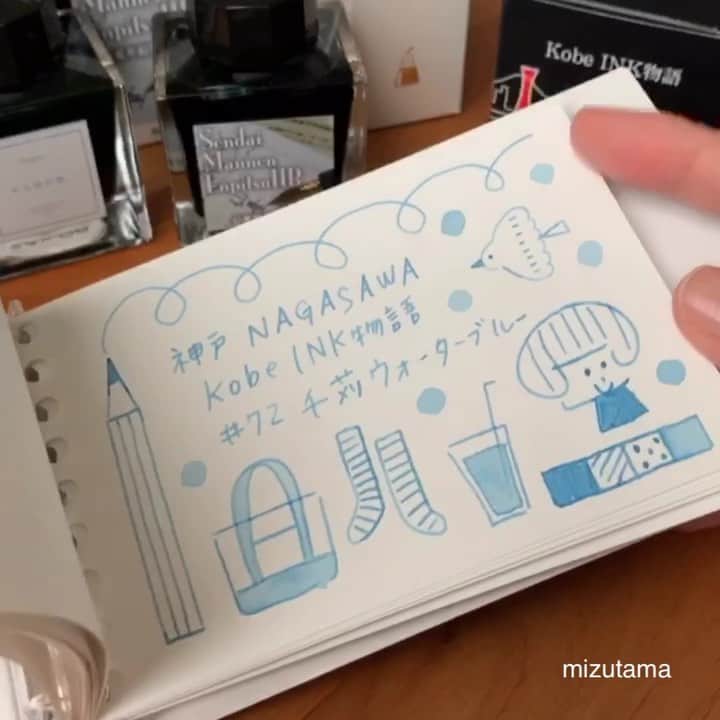 Kobe INK物語
Sendai
Mannen
神戸 NAGASAWA
Kobe INK物語
#72 千苅ウォーターブルー
mizutama